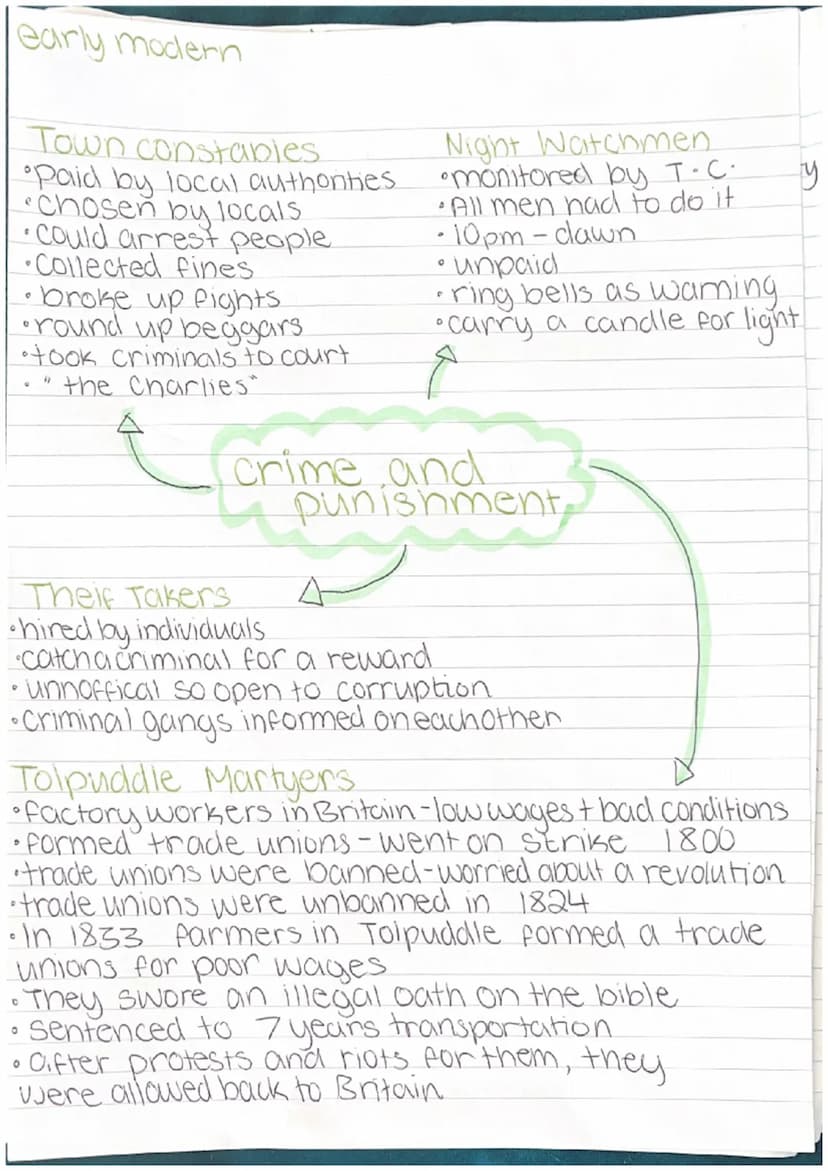 early modern
Town constables
•Paid by local authorities
•chosen by locals
•could arrest people
•Collected fines
•broke up fights
•round up beggars
•took criminals to court
•"the Charlies"
Night Watchmen
•monitored by T.C.
•All men had to do it
•10pm - dawn
•unpaid
•ring bells as warning
•carry a candle for light
y
crime and
punishment
Theif Takers
•hired by individuals
•catch a criminal for a reward
•unnoffical so open to corruption
•criminal gangs informed on each other
Tolpuddle Martyers
•factory workers in Britain - low wages + bad conditions
•formed trade unions - went on strike 1800
•trade unions were banned - worried about a revolution
•trade unions were unbanned in 1824
•In 1833 farmers in Tolpuddle formed a trade
unions for poor wages
•They swore an illegal oath on the bible
•sentenced to 7 years transportation
•after protests and riots for them, they
were allowed back to Britain